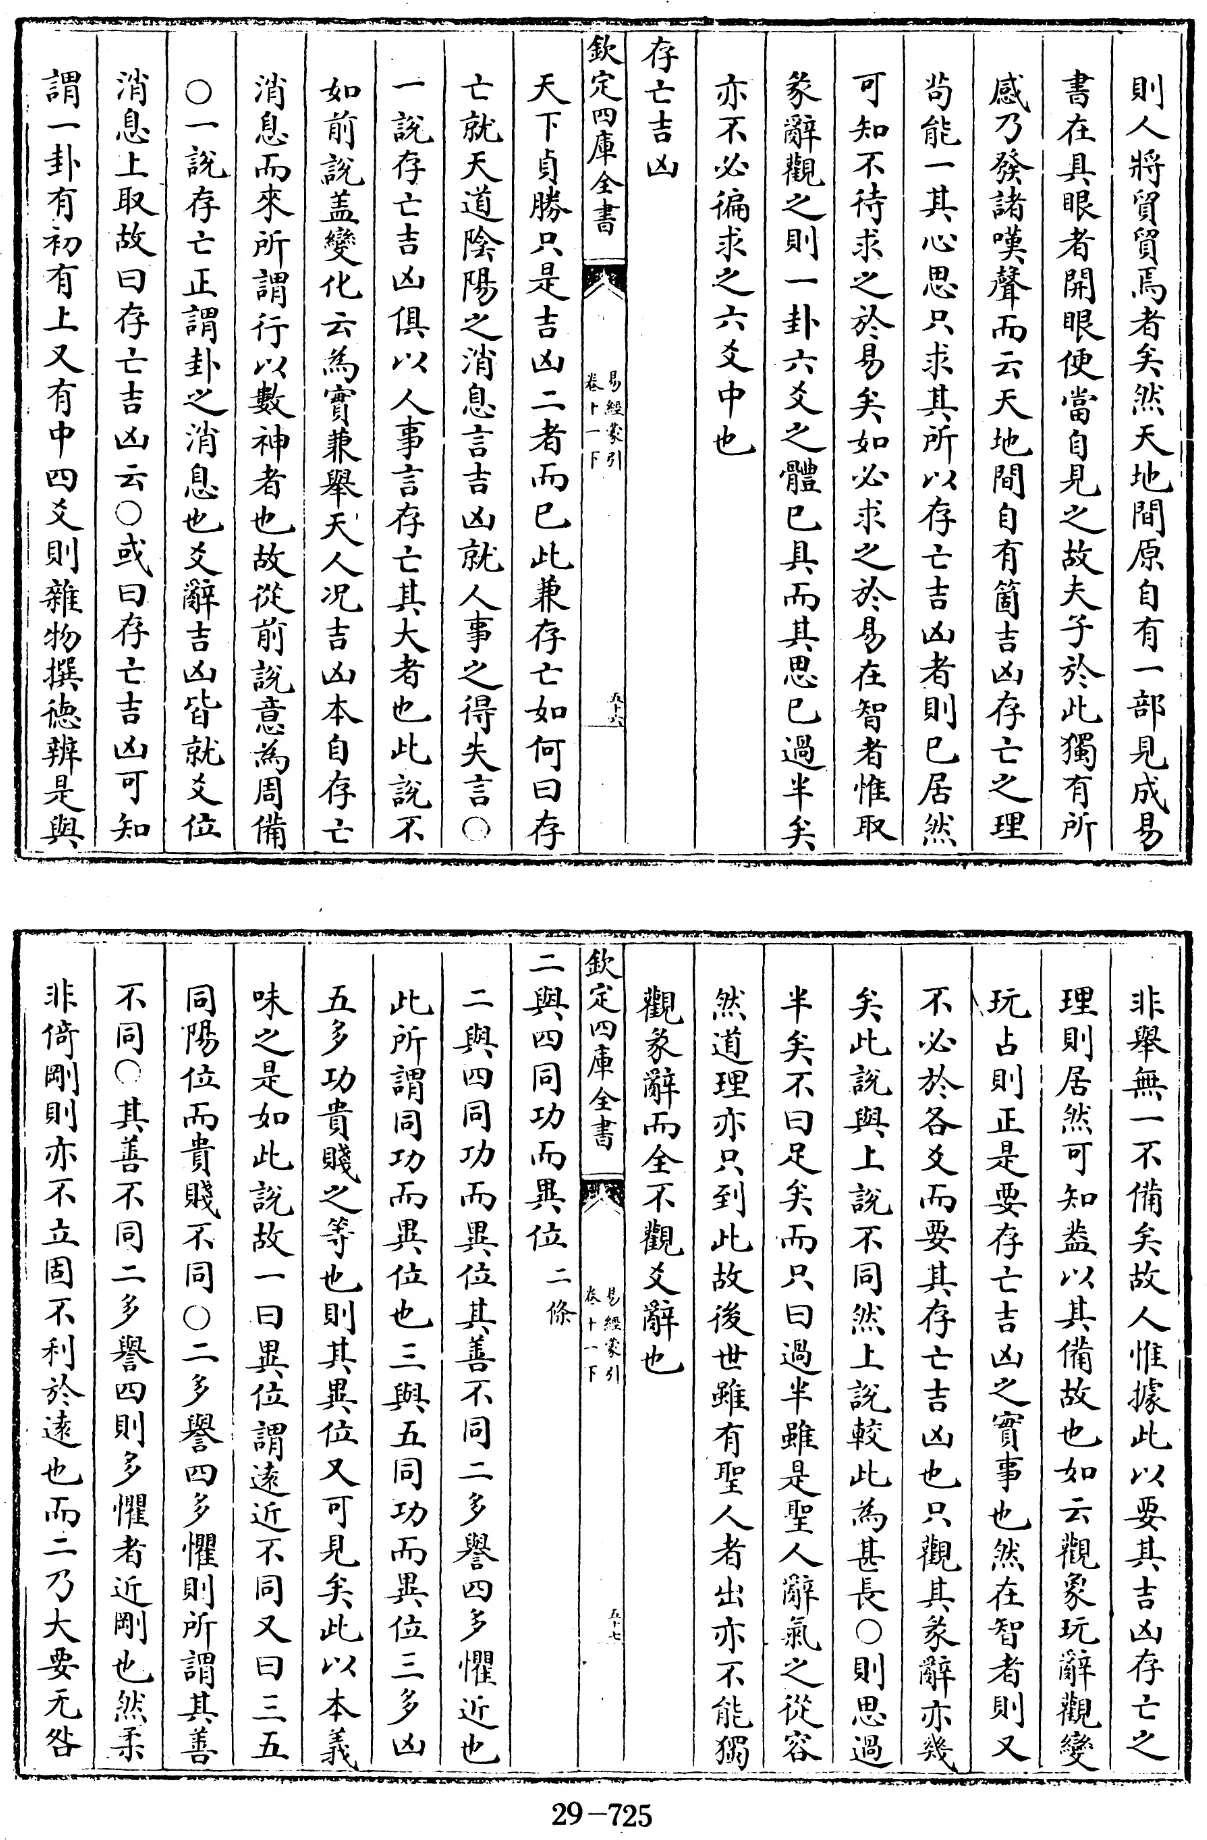 則人將貿貿焉者矣然天地間原自有一部見成易
書在具眼者開眼便當自見之故夫子於此獨有所
感乃發諸嘆聲而云天地間自有箇吉凶存亡之理
茍能一其心思只求其所以存亡吉凶者則已居然
可知不待求之於易矣如必求之於易在智者惟取
彖辭觀之則一卦六爻之體已具而其思已過半矣
亦不必徧求之六爻中也
存亡吉凶
欽定四庫全書
易經蒙引
卷十一下
五十六
天下貞勝只是吉凶二者而已此兼存亡如何曰存
亡就天道陰陽之消息言吉凶就人事之得失言○
一說存亡吉凶俱以人事言存亡其大者也此說不
如前說盖變化云為實兼舉天人况吉凶本自存亡
消息而來所謂行以數神者也故從前說意為周備
○一說存亡正謂卦之消息也爻辭吉凶皆就爻位
消息上取故曰存亡吉凶云○或曰存亡吉凶可知
謂一卦有初有上又有中四爻則雜物撰德辨是與
非舉無一不備矣故人惟據此以要其吉凶存亡之
理則居然可知葢以其備故也如云觀象玩辭觀變
玩占則正是要存亡吉凶之實事也然在智者則又
不必於各爻而要其存亡吉凶也只觀其彖辭亦幾
矣此說與上說不同然上說較此為甚長○則思過
半矣不曰足矣而只曰過半雖是聖人辭氣之從容
然道理亦只到此故後世雖有聖人者出亦不能獨
觀彖辭而全不觀爻辭也
欽定四庫全書
易經蒙引
卷十一下
五十七
二與四同功而異位 二條
二與四同功而異位其善不同二多譽四多懼近也
此所謂同功而異位也三與五同功而異位三多凶
五多功貴賤之等也則其異位又可見矣此以本義
味之是如此說故一曰異位謂遠近不同又曰三五
同陽位而貴賤不同○二多譽四多懼則所謂其善
不同○其善不同二多譽四則多懼者近剛也然柔
非倚剛則亦不立固不利於遠也而二乃大要无咎
29-725